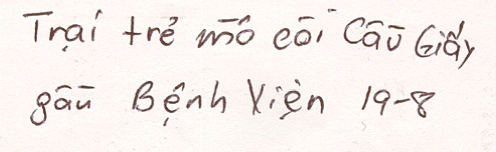 Trại trẻ mồ côi Cầu Giấy
gần Bệnh Viện 19-8